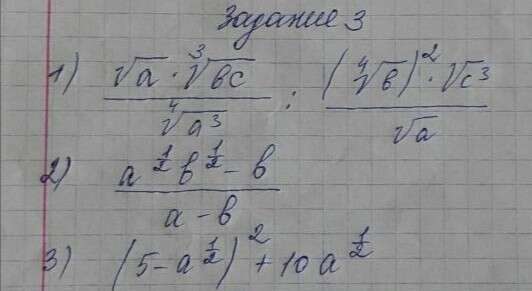 Задание 3
1) \frac{\sqrt{a} \cdot \sqrt[3]{вc}}{\sqrt[4]{a^3}} : \frac{(\sqrt[4]{в})^2 \cdot \sqrt{c^3}}{\sqrt{a}}
2) \frac{a^{\frac{1}{2}} в^{\frac{1}{2}} - в}{a - в}
3) (5 - a^{\frac{1}{2}})^2 + 10 a^{\frac{1}{2}}